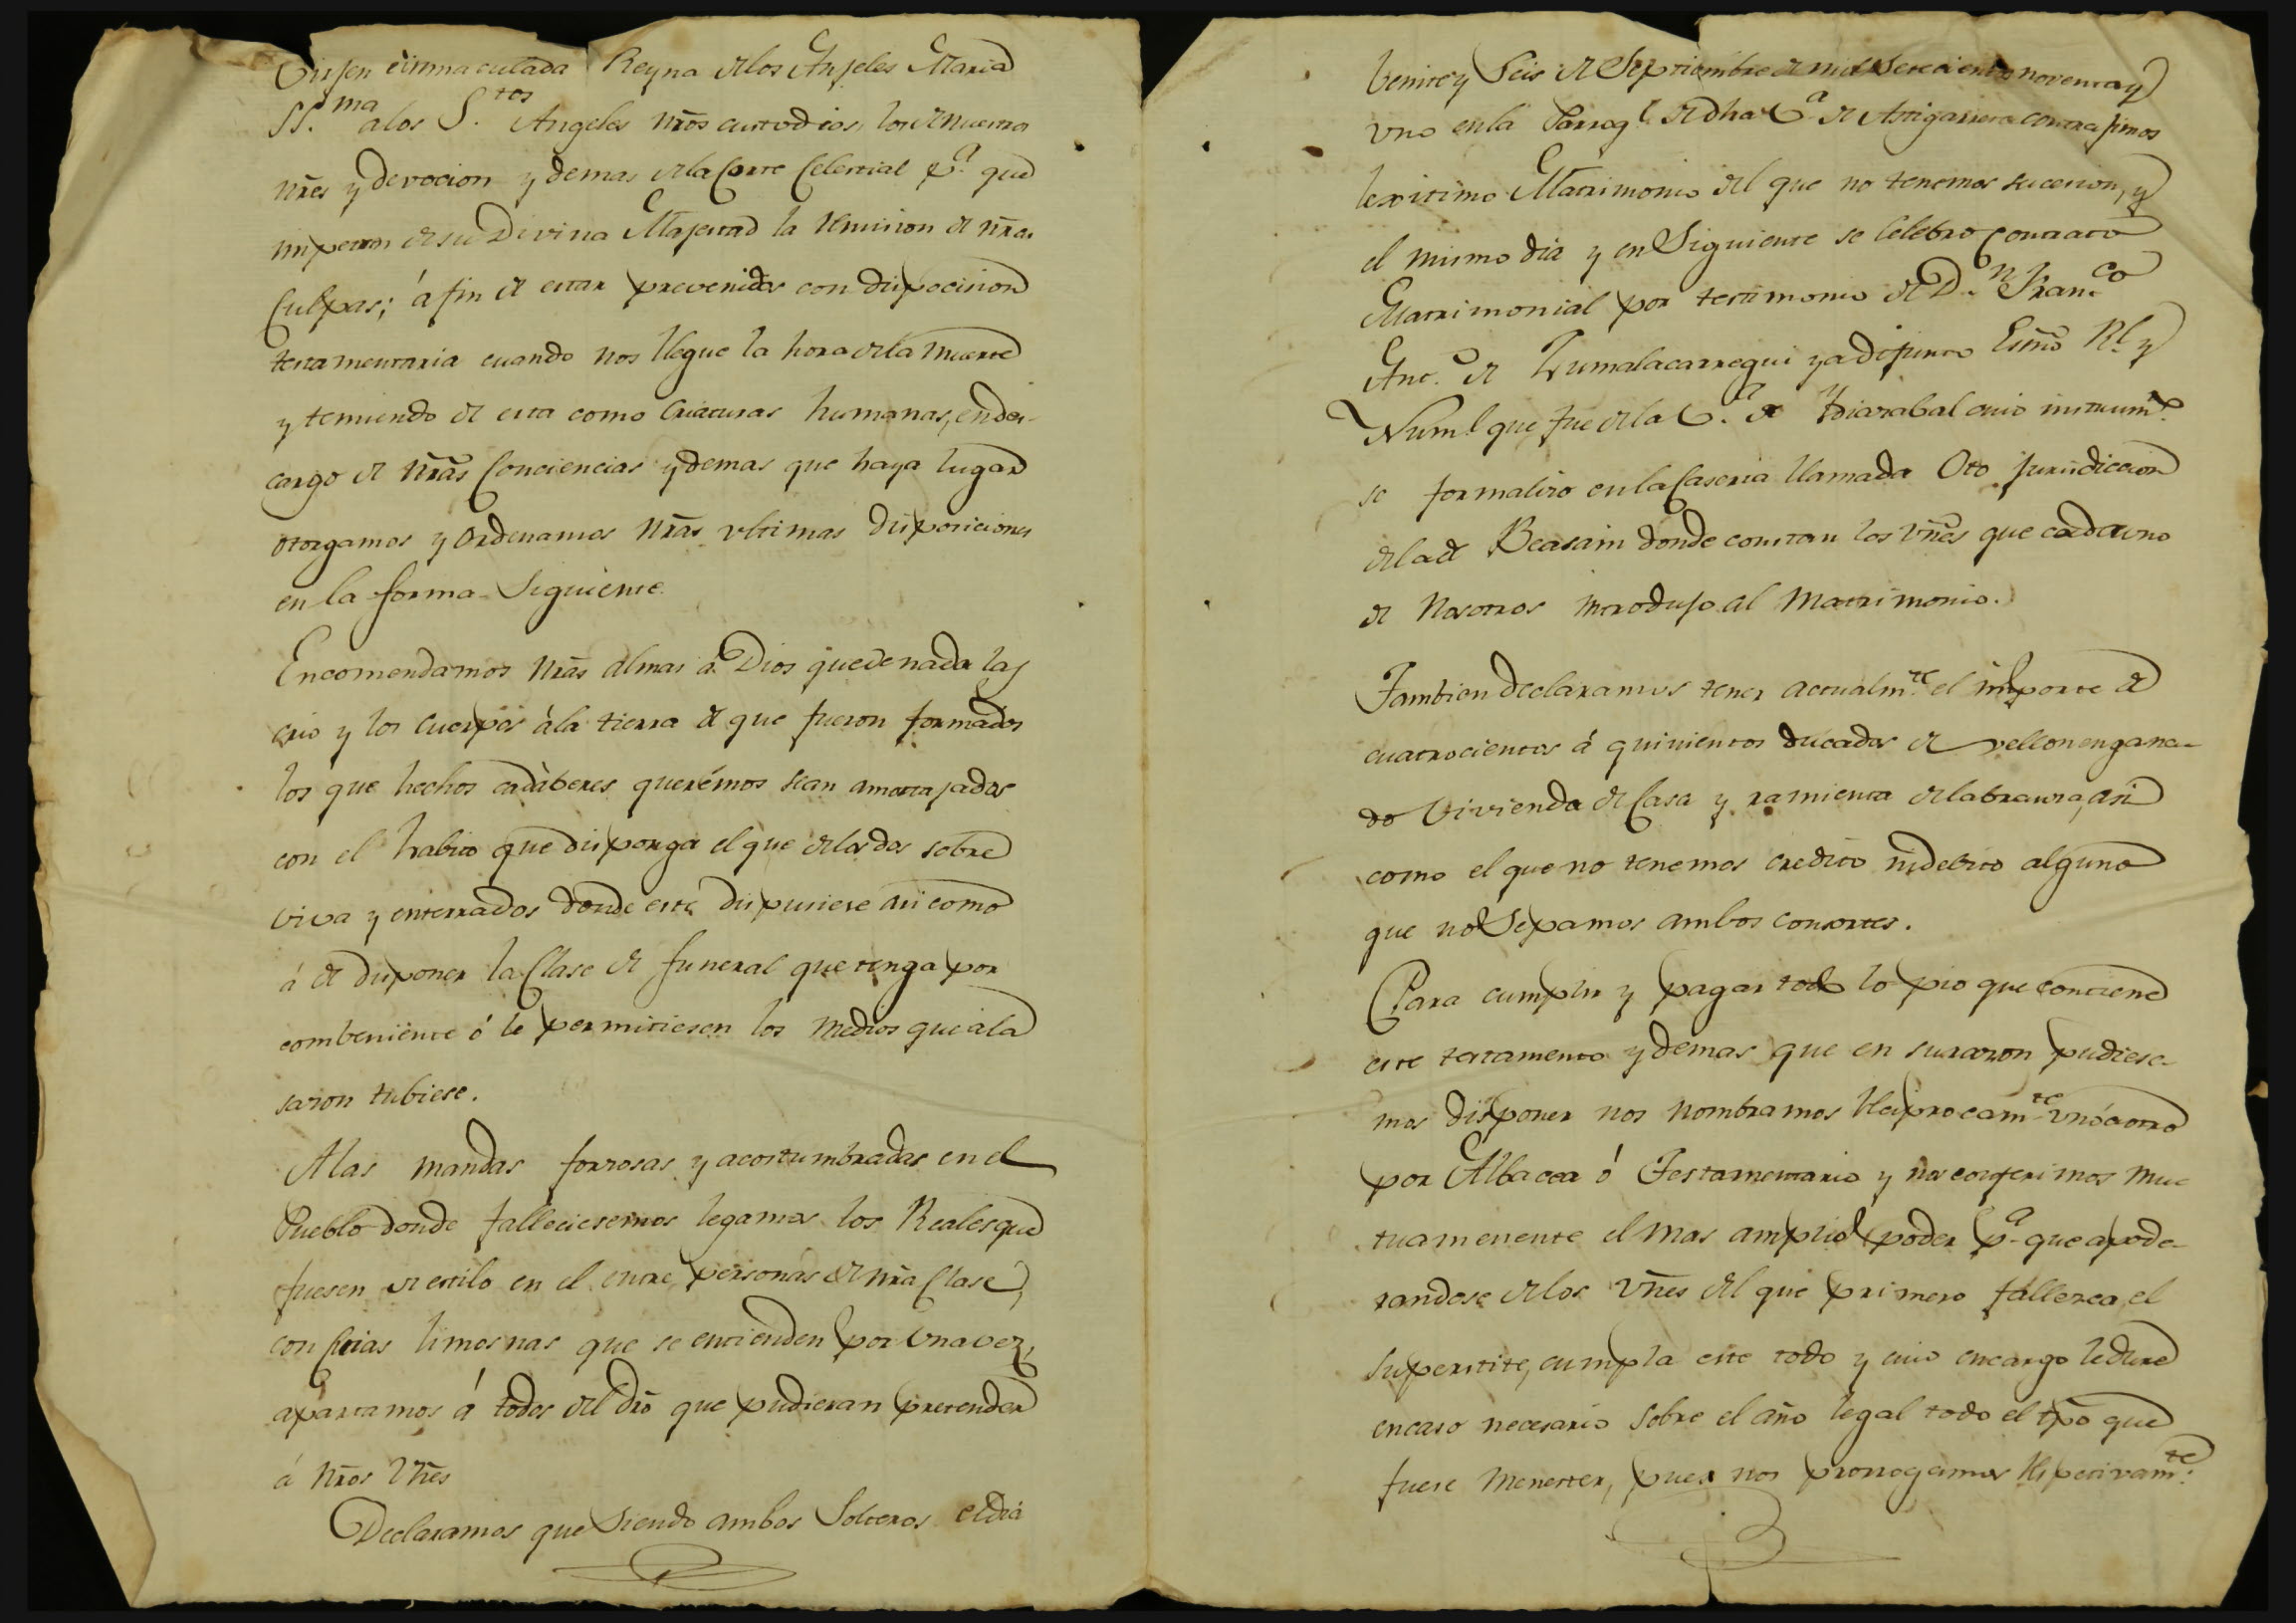 Virjen é inmaculada Reyna delos Anjeles Maria
SS.ma a los S.tos Angeles nros custodios, los de nuestros
nres y devocion y demas dela Corte Celestial pa. que
impetren de su Divina Majestad la remision de nras.
Culpas; á fin de estar prevenidos con disposicion
testamentaria cuando nos llegue la hora dela muerte
y temiendo de esta como Criaturas humanas, en des-
cargo de nras Conciencias y demas que haya lugar
otorgamos y ordenamos nras ultimas disposiciones
en la forma Siguiente.
Encomendamos nras almas á Dios que de nada las
crio y los cuerpos á la tierra de que fueron formados
los que hechos cadáberes querémos sean amortajados
con el habito que disponga el que de los dos sobre
viva y enterrados donde este dispusiese asi como
á de disponer la Clase de funeral que tenga por
combeniente ó le permitiesen los medios que á la
sazon tubiese.
A las mandas forzosas y acostumbradas en el
Pueblo donde falleciesemos legamos los Reales que
fuesen de estilo en el entre personas de nra Clase,
con cuias limosnas que se entienden por una vez,
apartamos á todos del dro que pudieran pretender
á nros Vnes
Declaramos que Siendo ambos Solteros el dia
beinte y Seis de Septiembre de mil Setecientos noventa y
uno en la Parroql. de dha Va. de Astigarreta contrajimos
lexitimo Matrimonio del que no tenemos sucesion, y
el mismo dia y en Siguiente se Celebro Contrato
Matrimonial por testimonio de D.n Fran.co
Ant.o de Zumalacarregui ya difunto Esno Rl. y
Numl. que fue dela Va. de Ydiazabal cuio instrumto.
se formalizo en la Caseria llamada Oto jurisdiccion
dela de Beasain donde constan los vnes que cada uno
de Nosotros introdujo al Matrimonio.
Tambien declaramos tener actualm.te el importe de
cuatrocientos á quinientos ducados de vellon en gana-
do Vivienda de Casa y ramienta de labranza, asi
como el que no tenemos credito ni debito alguno
que no Sepamos ambos consortes.
Para cumplir y pagar todo lo pio que contiene
este testamento y demas que en su razon pudiese-
mos disponer nos nombramos reciprocam.te uno á otro
por Albacea ó Testamentario y nos conferimos mu-
tuamenente el mas amplio poder pa. que apode-
randose de los vnes del que primero fallezca, el
superstite, cumpla este todo y cuio encargo le dure
en caso necesario sobre el año legal todo el tpo que
fuese menester, pues nos prorrogamos respectivam.te